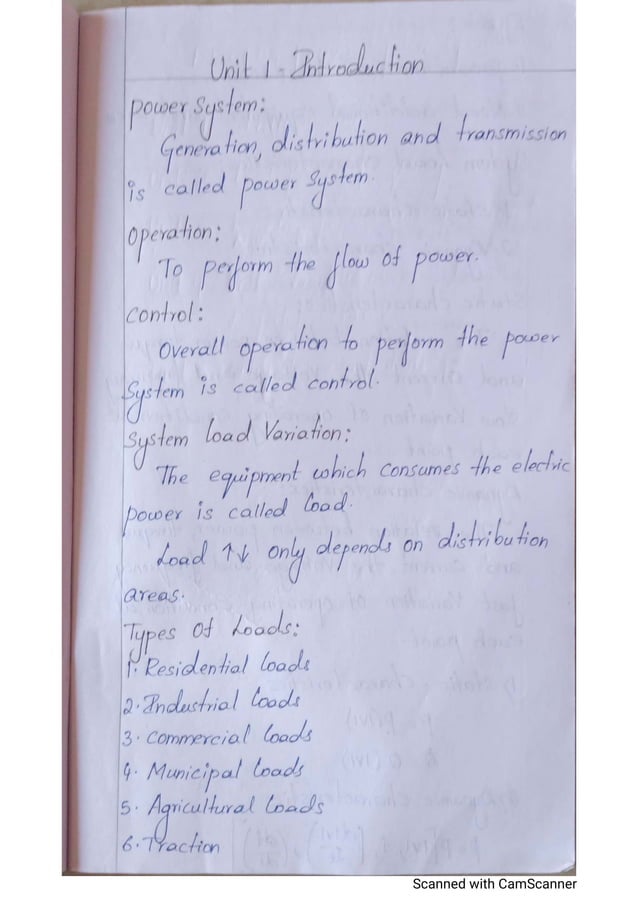 Unit 1 - Introduction
power System:
Generation, distribution and transmission
is called power System.
Operation:
To perform the flow of power.
Control:
Overall operation to perform the power
System is called control.
System load Variation:
The equipment which consumes the electric
power is called load.
Load ↑↓ only depends on distribution
areas.
Types Of Loads:
1. Residential loads
2. Industrial loads
3. Commercial loads
4. Municipal loads
5. Agricultural loads
6. Traction
Scanned with CamScanner